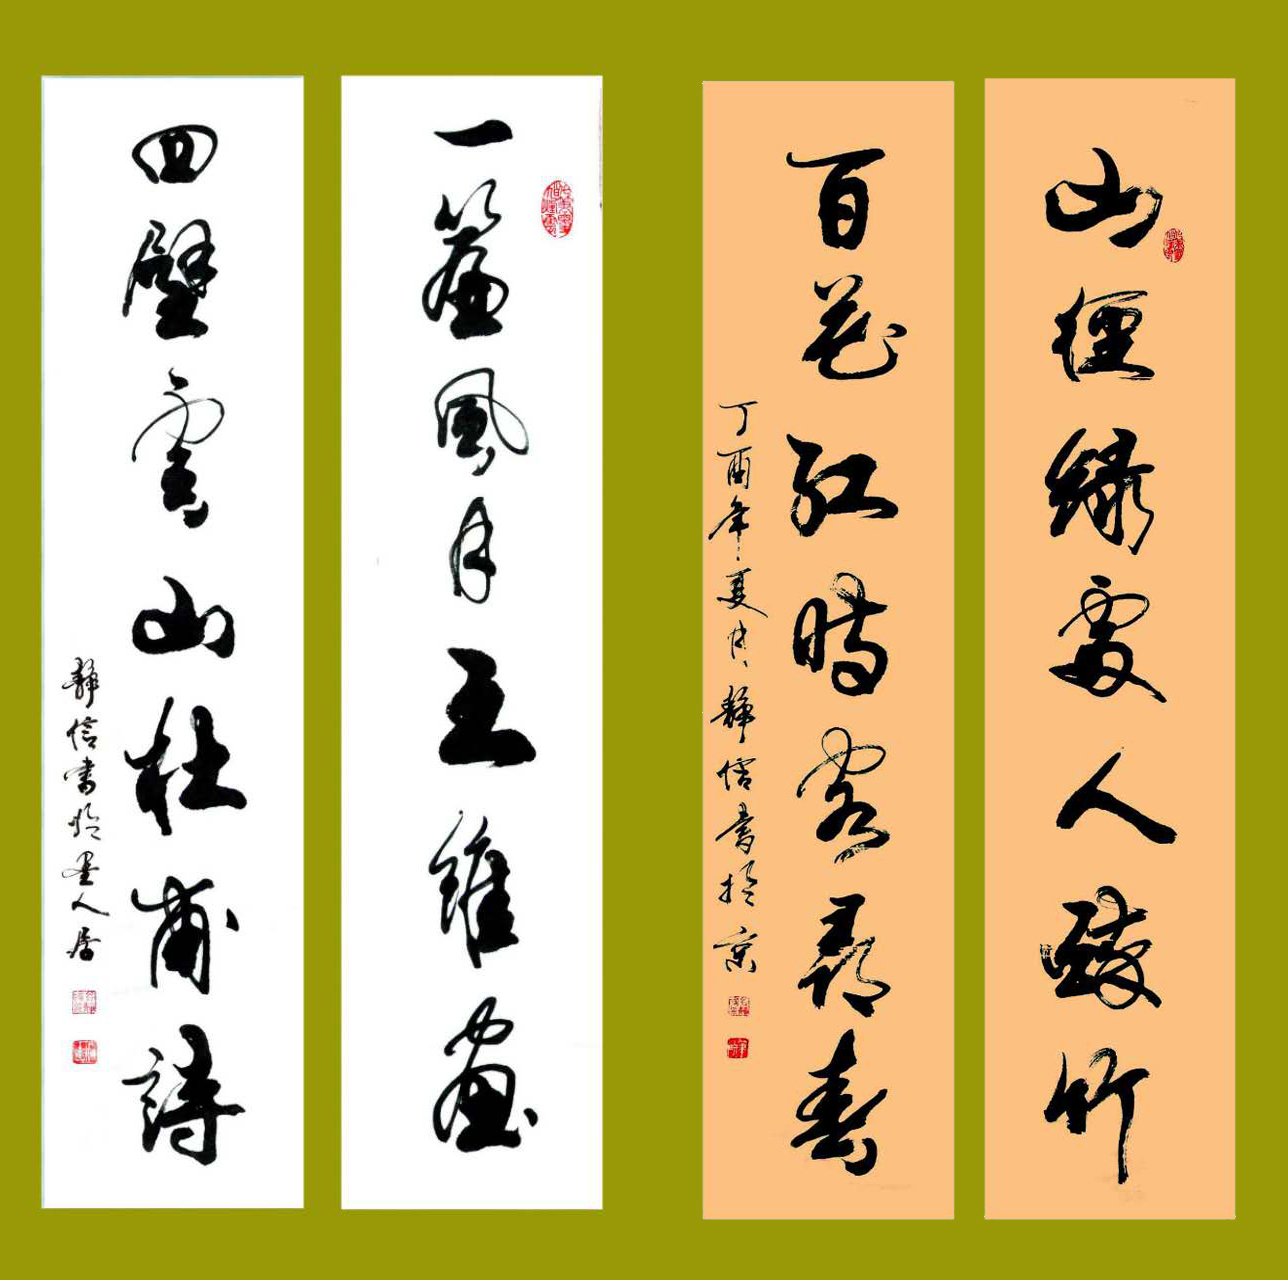 山徑綠處人醉竹
百花紅時客尋春
丁酉年夏月靜信書於京
一簾風月王維畫
四壁雲山杜甫詩
靜信書於墨人居